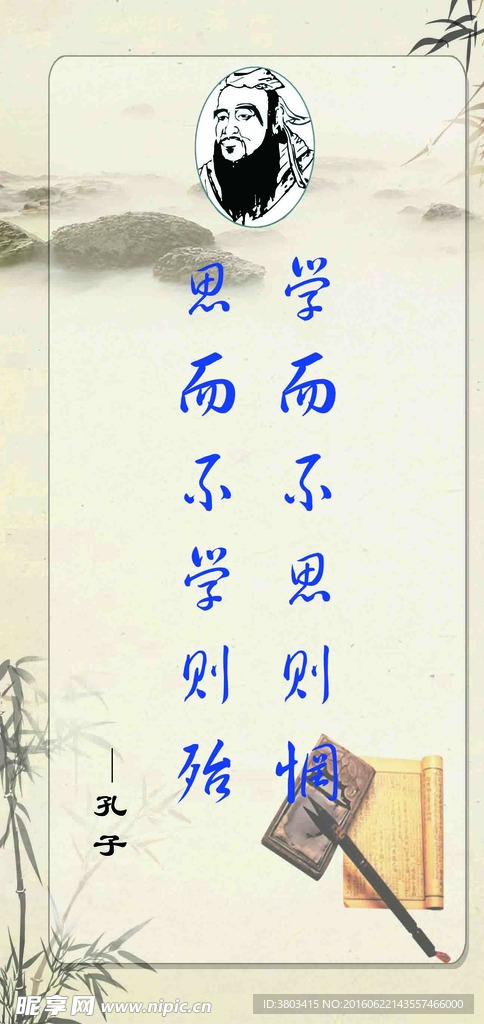 学而不思则惘
思而不学则殆
—孔子
昵享网 www.nipic.cn
ID:3803415 NO:20160622143557466000